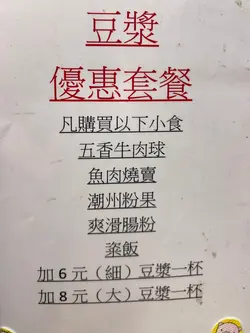 豆漿
優惠套餐
凡購買以下小食
五香牛肉球
魚肉燒賣
潮州粉果
爽滑腸粉
粢飯
加6元（細）豆漿一杯
加8元（大）豆漿一杯